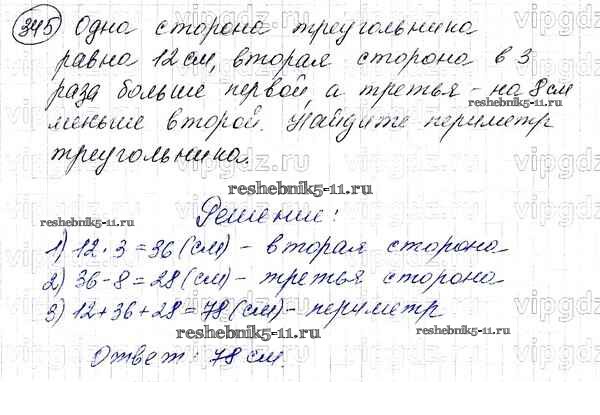 345 Одна сторона треугольника
равна 12 см, вторая сторона в 3
раза больше первой а третья - на 8 см
меньше второй. Найдите периметр
треугольника.
reshebnik5-11.ru
reshebnik5-11.ru
Решение:
1) 12 · 3 = 36 (см) - вторая сторона
2) 36 - 8 = 28 (см) - третья сторона
3) 12 + 36 + 28 = 78 (см) - периметр
reshebnik5-11.ru
reshebnik5-11.ru
Ответ: 78 см.
vipgdz.ru
vipgdz.ru
vipgdz.ru